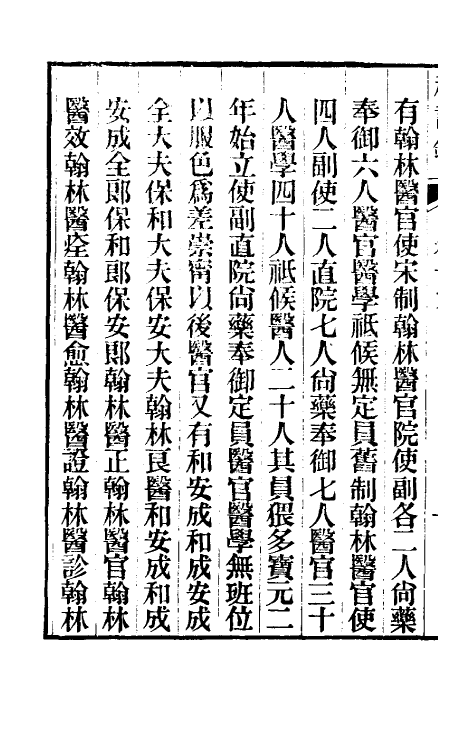 有翰林醫官使宋制翰林醫官院使副各二人尙藥
奉御六人醫官醫學祗候無定員舊制翰林醫官使
四人副使二人直院七人尙藥奉御七人醫官三十
人醫學四十人祗候醫人二十人其員猥多寶元二
年始立使副直院尙藥奉御定員醫官醫學無班位
以服色爲差崇甯以後醫官又有和安成和成安成
全大夫保和大夫保安大夫翰林良醫和安成和成
安成全郎保和郎保安郎翰林醫正翰林醫官翰林
醫效翰林醫痊翰林醫愈翰林醫證翰林醫診翰林